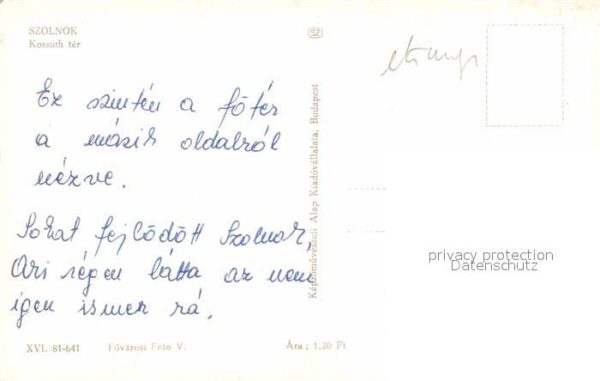 SZOLNOK
Kossuth tér
Ez szintén a főtér
a másik oldalról
nézve.
Sokat fejlődött Szolnok,
Aki régen látta az nem
igen ismer rá.
Képzőművészeti Alap Kiadóvállalata, Budapest
privacy protection
Datenschutz
XVI. 81-641
Fővárosi Foto V.
Ára: 1,20 Ft